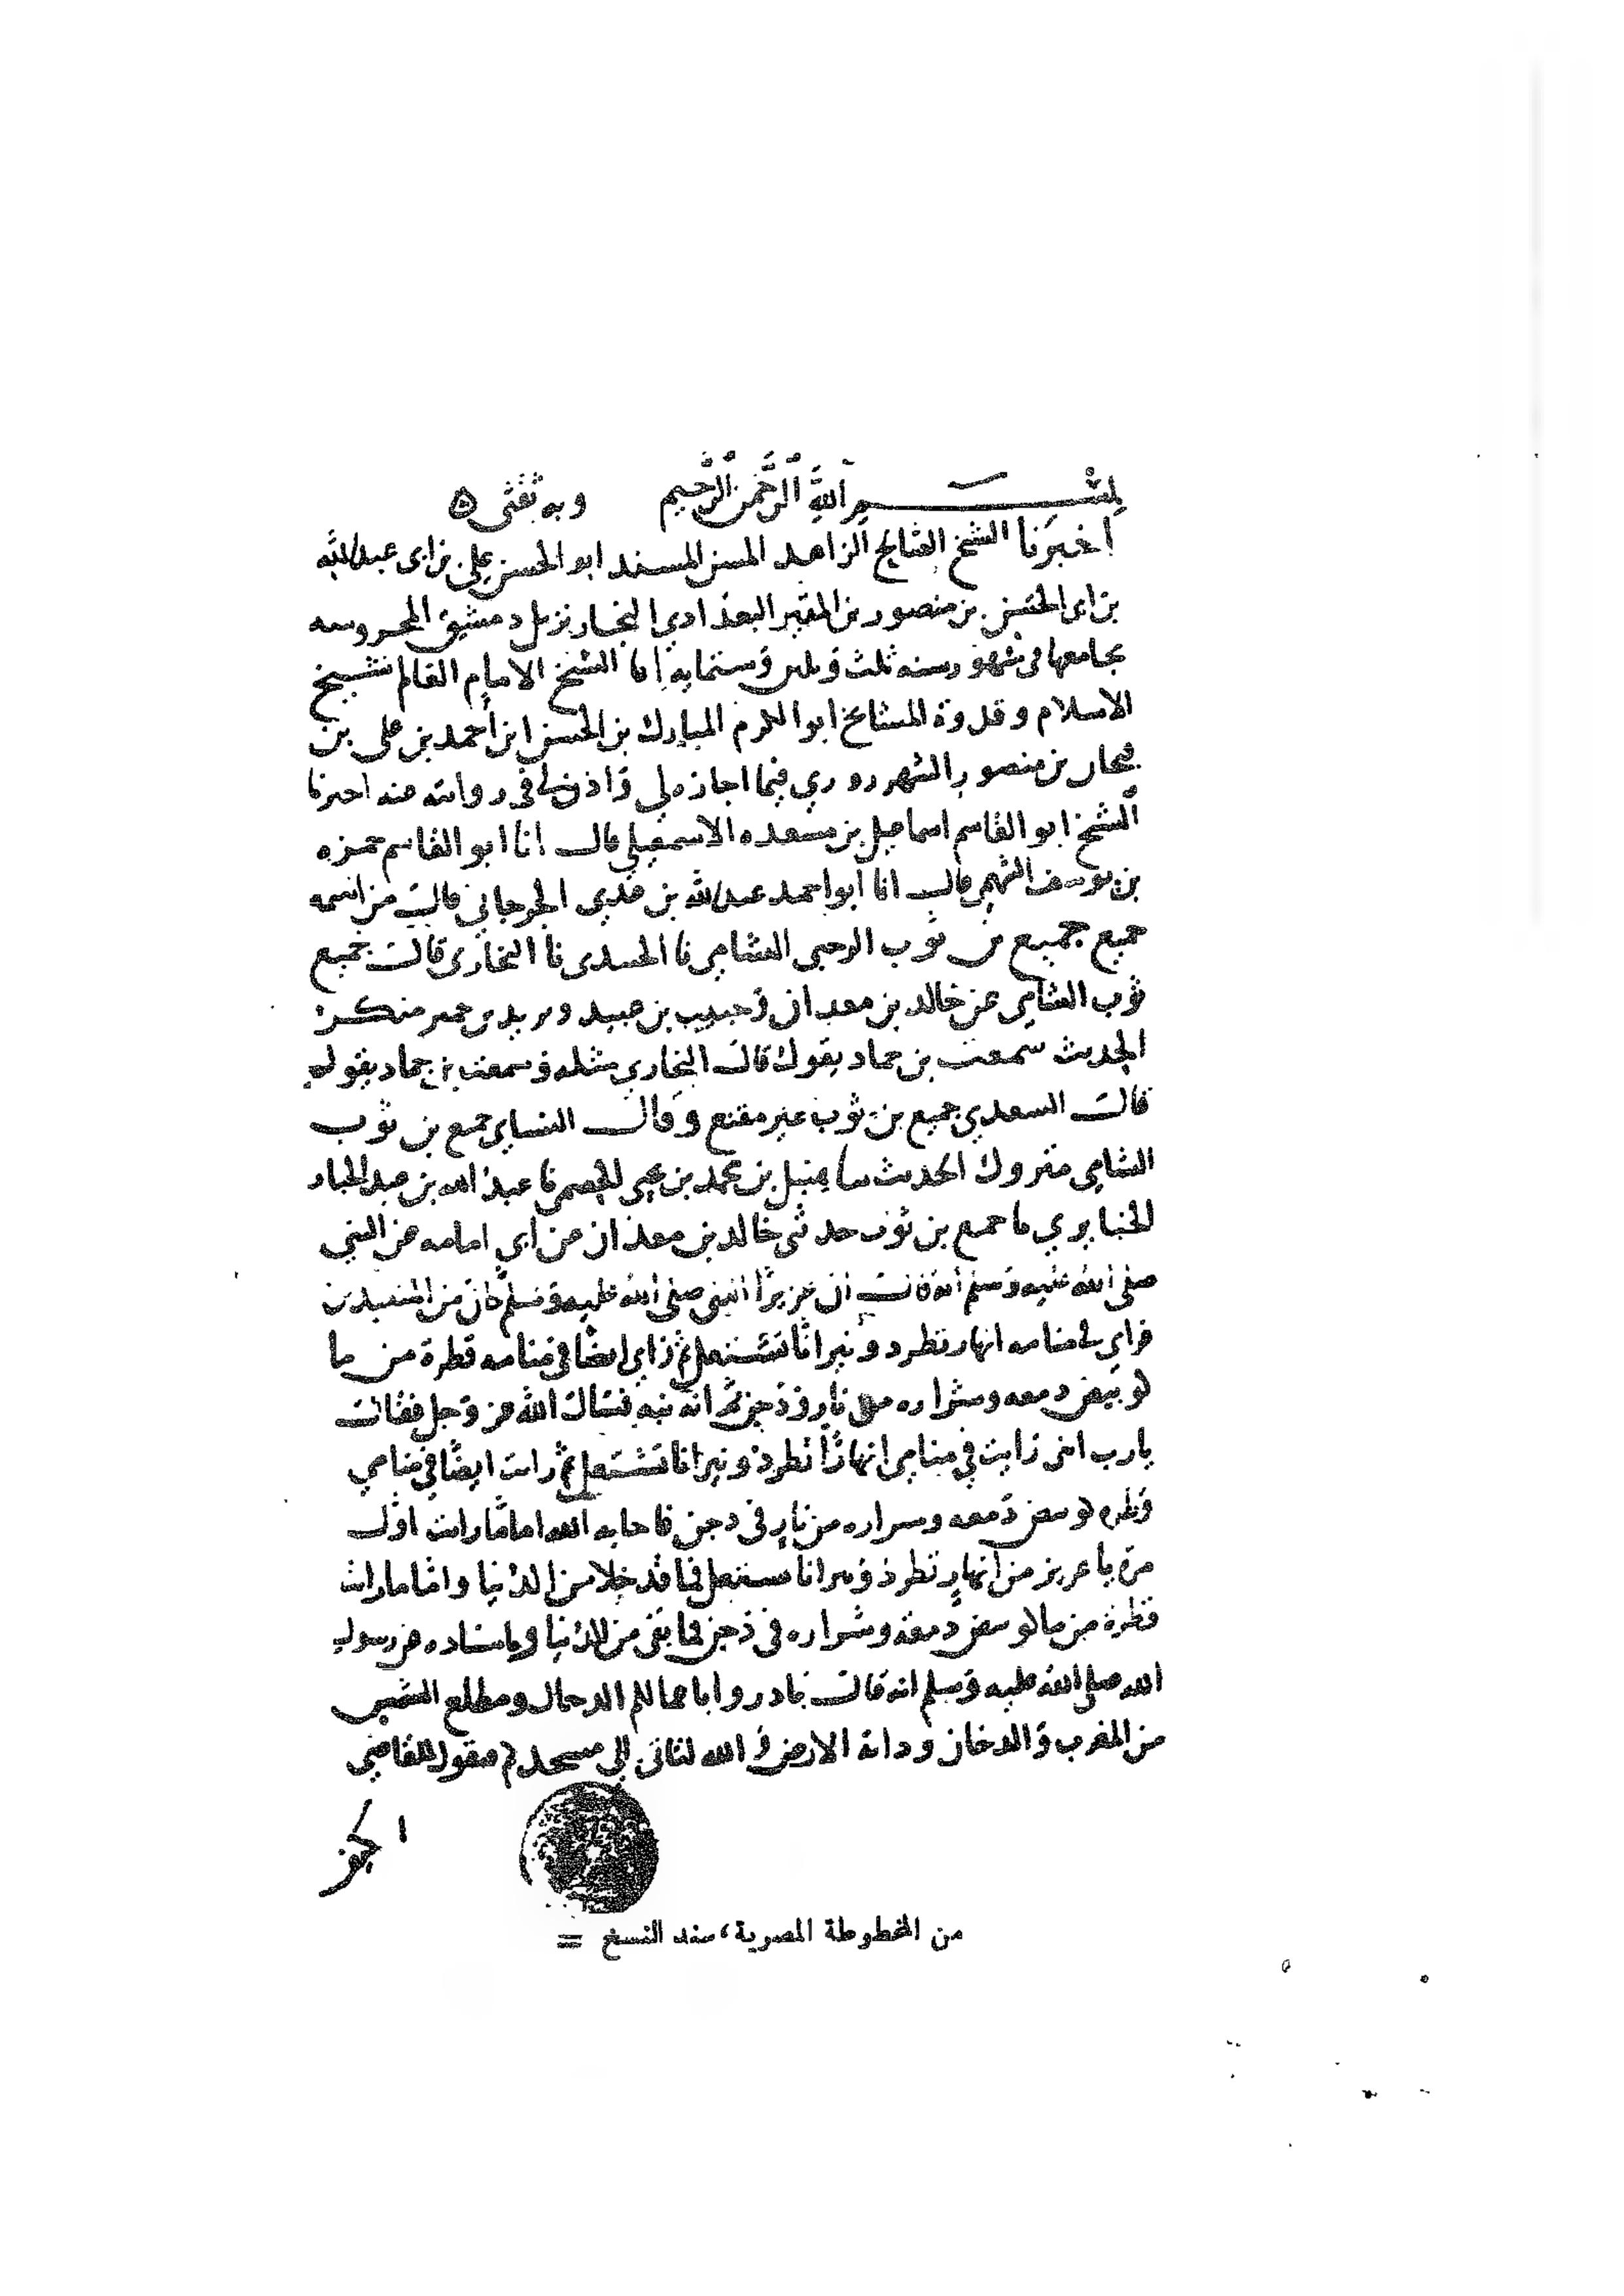 بسم الله الرحمن الرحيم وبه ثقتي ٥
أخبرنا الشيخ الصالح الزاهد المسن المسند ابو الحسن علي بن ابى عبدالله
بن ابى الحسن بن منصور بن المقير البغدادي النجار نزيل دمشق المحروسه
بجامعها في شهور سنه ثلث وثلثين وستمايه انا الشيخ الامام العالم شيخ
الاسلام وقدوة المشايخ ابو الكرم المبارك بن الحسن ابن أحمد بن علي بن
فتحان بن منصور الشهرزوري فيما اجازه لي وأذن لي في روايته عنه اخبرنا
الشيخ ابو القاسم اسماعيل بن مسعده الاسمعيلي قال انا ابو القاسم حمزه
بن يوسف السهمي قال انا ابو احمد عبدالله بن عدي الجرجاني قال من اسمه
جميع جميع بن ثوب الرحبي الشامي نا الجنيدى نا البخارى قال جميع
ثوب الشامي عن خالد بن معدان وحبيب بن عبيد ويزيد بن خمير منكر
الحديث سمعت بن حماد يقول قال البخاري مثله وسمعت بن حماد يقول
قال السعدي جميع بن ثوب غير مقنع وقال النساي جميع بن ثوب
الشامي متروك الحديث بن محمد بن يحيى نا عبد الله بن عبد الجبار
الخبايري نا جميع بن ثوب حدثني خالد بن معدان عن ابي امامه عن النبي
صلى الله عليه وسلم انه قال ان عزيرا النبي صلى الله عليه وسلم كان من المتعبدين
فراي في منامه انهار تطرد ونيرانا تشتعل ثم راي ايضا في منامه قطرة من ما
كوبيص دمعه وشراره من نار في دجن ثم انه نبه فسال الله عز وجل فقال
يارب اني رايت في منامي انهارا تطرد ونيرانا تشتعل ثم رايت ايضا في منامي
قطره كوبيص دمعه وشراره من نار في دجن فاجابه الله اما ما رايت اول
مرة يا عزيز من انهار تطرد ونيرانا تشتعل فما قد خلا من الدنيا واما ما رايت
قطرة من ما كوبيص دمعه وشراره في دجن فما بقى من الدنيا وباسناده عن رسول
الله صلى الله عليه وسلم انه قال بادروا الدجال ومطلع الشمس
من المغرب والدخان ودابة الارض الله لتاتى الى مسجد
من المخطوطة المصرية، سند النسخ =